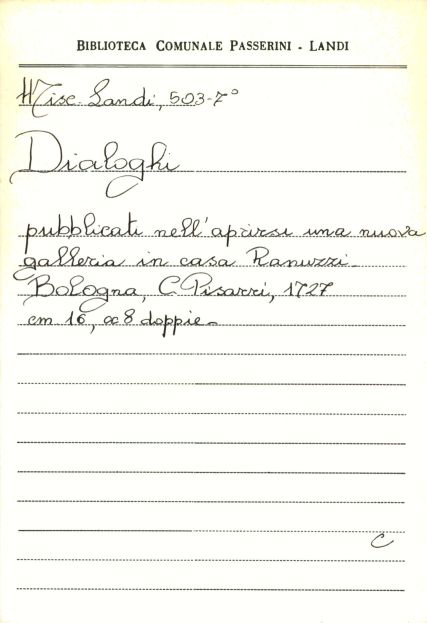 BIBLIOTECA COMUNALE PASSERINI - LANDI
Misc. Landi, 503-7°
Dialoghi
pubblicati nell'aprirsi una nuova
galleria in casa Ranuzzi.
Bologna, C. Pisarri, 1727
cm 16, cc 8 doppie.
C